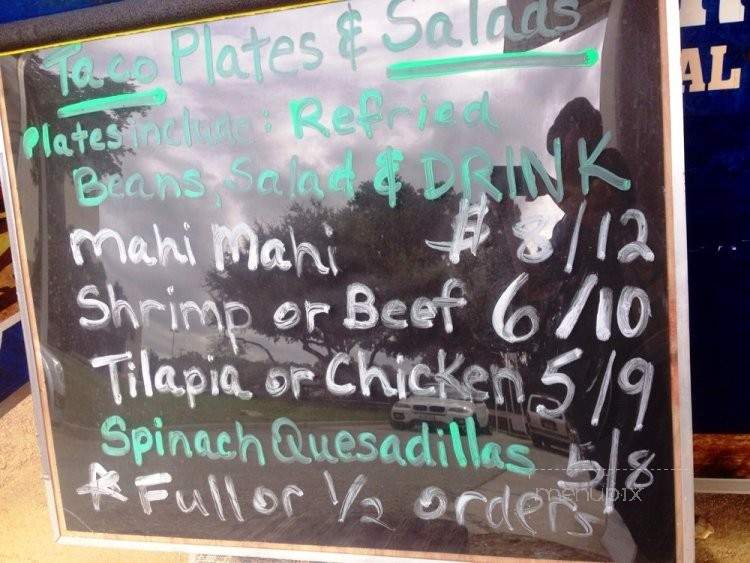 Taco Plates & Salads
Plates include: Refried
Beans, Salad & DRINK
Mahi Mahi $ 8/12
Shrimp or Beef 6/10
Tilapia or Chicken 5/9
Spinach Quesadillas 5/8
* Full or 1/2 orders
menupix
AL